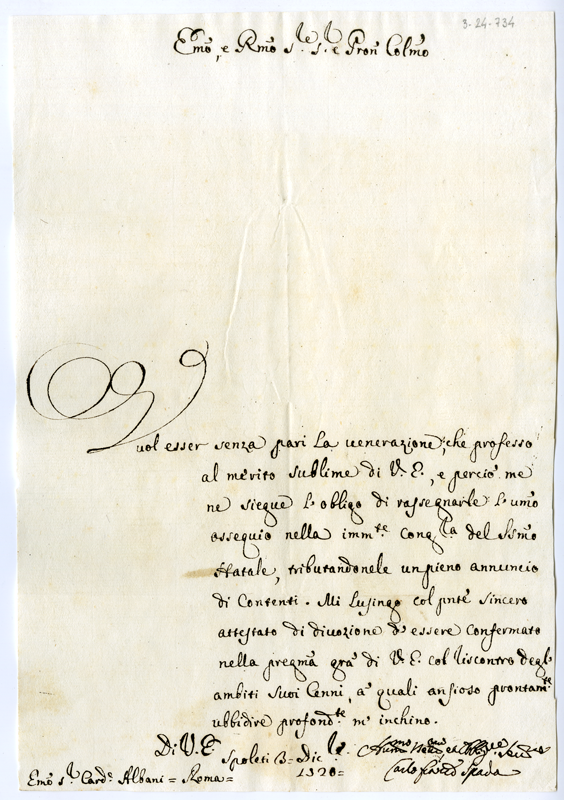 3-24-734
Emo, e Rmo Sre S. e Pron Colmo
Vuol esser senza pari la venerazione, che professo
al merito sublime di V. E., e perciò me
ne siegue l'obligo di rassegnarle l'umo
ossequio nella immte congra del SSmo
Natale, tributandonele un pieno annuncio
di Contenti. Mi lusingo col pnte sincero
attestato di divozione d'essere confermato
nella pregma gra di V. E. col riscontro degl'
ambiti suoi Cenni, a' quali ansioso prontamte
ubbidire profondte m'inchino.
Di V. E.
Spoleti 3 Dic
1720=
Emo Sr Card. Albani = Roma=
Carlo Spada